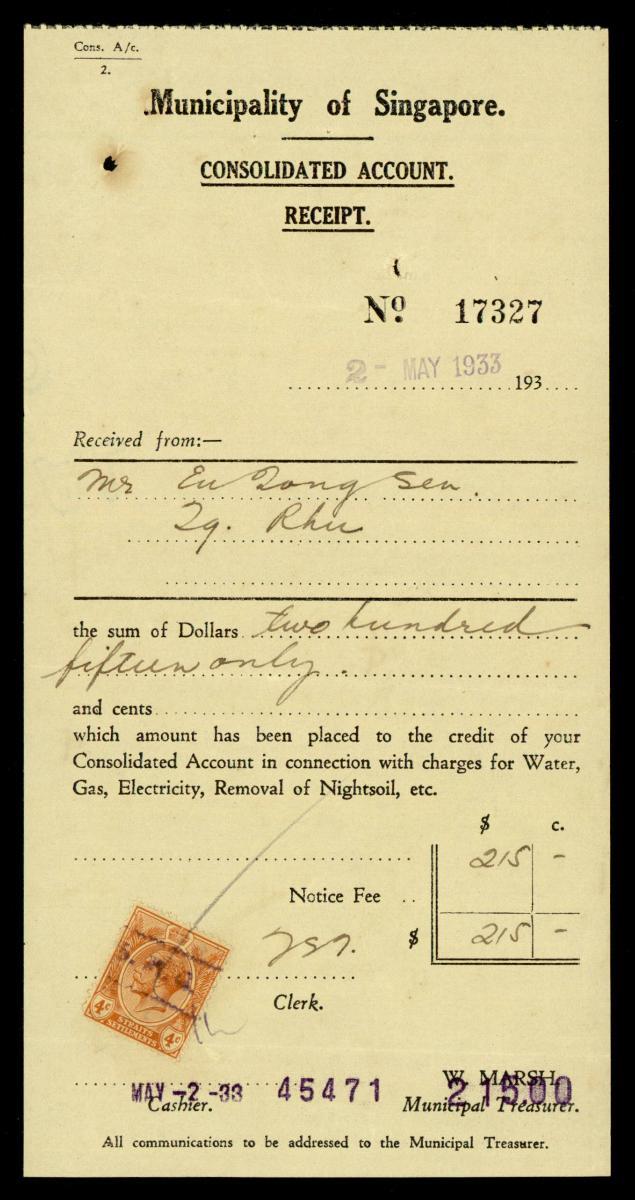 Cons. A/c.
2.
Municipality of Singapore.
CONSOLIDATED ACCOUNT.
RECEIPT.
Nº 17327
2 - MAY 1933
193
Received from:—
Mr Eu Tong Sen.
Tg. Rhu
the sum of Dollars two hundred
fifteen only.
and cents
which amount has been placed to the credit of your
Consolidated Account in connection with charges for Water,
Gas, Electricity, Removal of Nightsoil, etc.
$ c.
215 -
Notice Fee
$ 215 -
Clerk.
4c STRAITS SETTLEMENTS 4c
W. MARSH
MAY -2-33 45471 215.00
Cashier. Municipal Treasurer.
All communications to be addressed to the Municipal Treasurer.